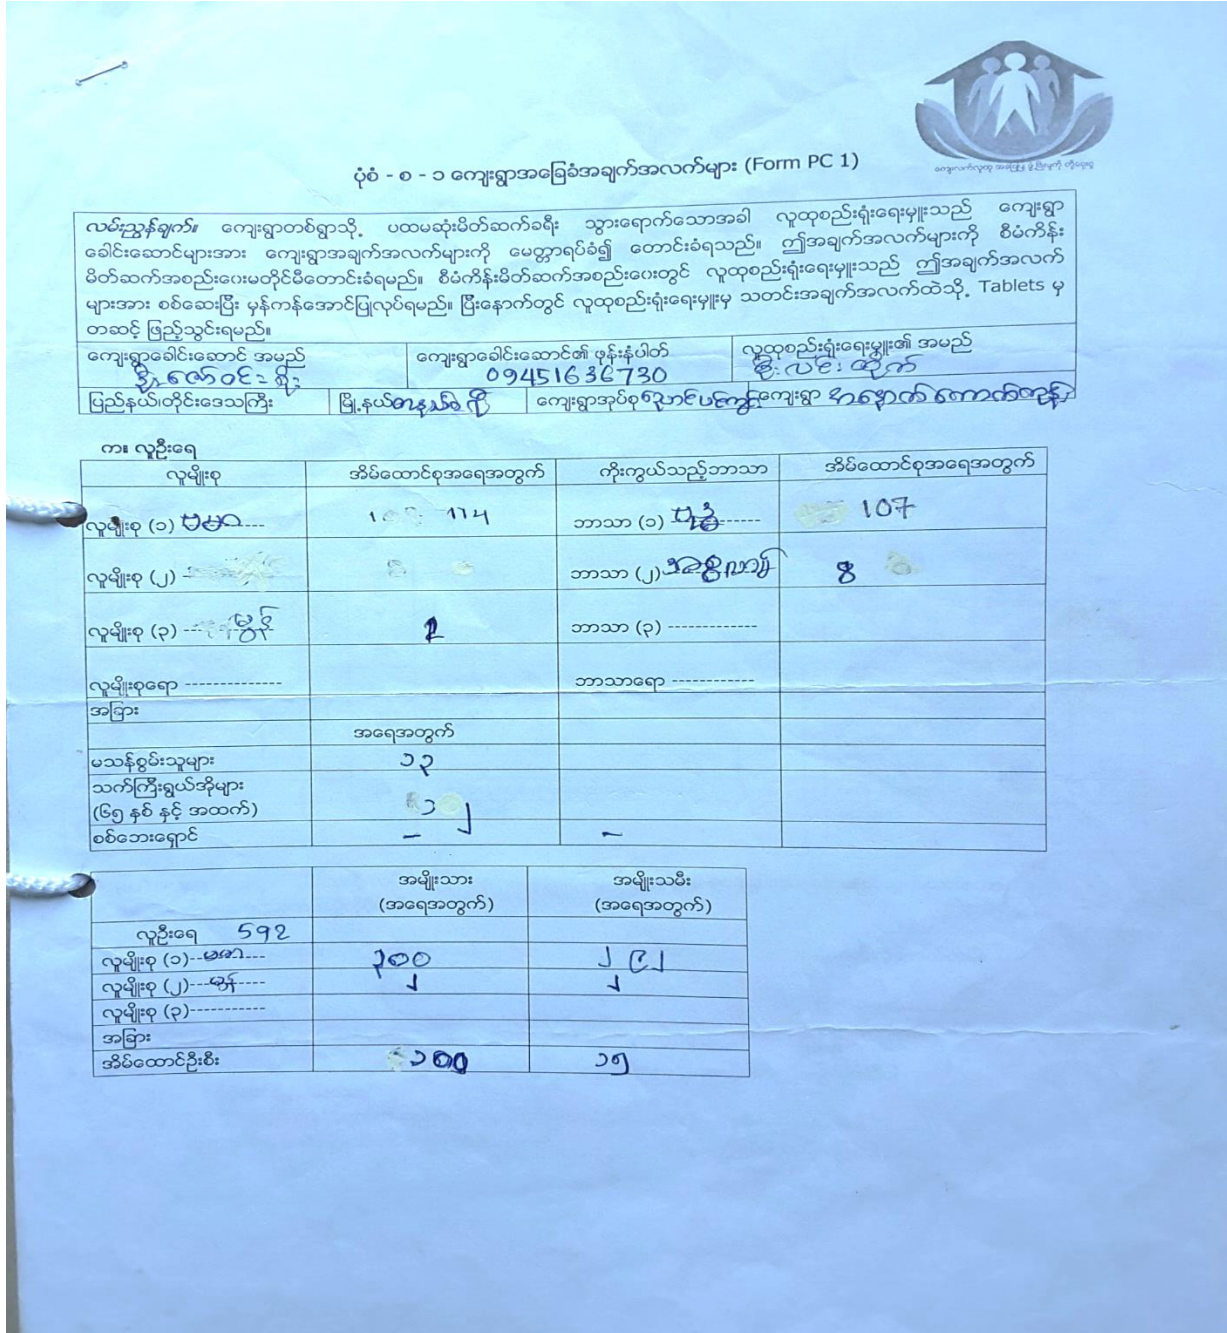 ပုံစံ - စ - ၁ ကျေးရွာအခြေခံအချက်အလက်များ (Form PC 1)
လမ်းညွှန်ချက်။ ကျေးရွာတစ်ရွာသို့ ပထမဆုံးမိတ်ဆက်ခရီး သွားရောက်သောအခါ လူထုစည်းရုံးရေးမှူးသည် ကျေးရွာ
ခေါင်းဆောင်များအား ကျေးရွာအချက်အလက်များကို မေတ္တာရပ်ခံ၍ တောင်းခံရသည်။ ဤအချက်အလက်များကို စီမံကိန်း
မိတ်ဆက်အစည်းဝေးမတိုင်မီတောင်းခံရမည်။ စီမံကိန်းမိတ်ဆက်အစည်းဝေးတွင် လူထုစည်းရုံးရေးမှူးသည် ဤအချက်အလက်
များအား စစ်ဆေးပြီး မှန်ကန်အောင်ပြုလုပ်ရမည်။ ပြီးနောက်တွင် လူထုစည်းရုံးရေးမှူးမှ သတင်းအချက်အလက်ထဲသို့ Tablets မှ
တဆင့် ဖြည့်သွင်းရမည်။
ကျေးရွာခေါင်းဆောင် အမည် ကျေးရွာခေါင်းဆောင်၏ ဖုန်းနံပါတ် လူထုစည်းရုံးရေးမှူး၏ အမည်
ဦးဇော်ဝင်းစိုး 09451636730 စိုးလင်းထိုက်
ပြည်နယ်/တိုင်းဒေသကြီး မြို့နယ် ကျေးရွာအုပ်စု ညောင်ပင်ကွင်း ကျေးရွာ အနောက်တောက်ကွန်း
က။ လူဦးရေ
လူမျိုးစု အိမ်ထောင်စုအရေအတွက် ကိုးကွယ်သည့်ဘာသာ အိမ်ထောင်စုအရေအတွက်
လူမျိုးစု (၁) ဗမာ 114 ဘာသာ (၁) ဗုဒ္ဓ 107
လူမျိုးစု (၂) ဘာသာ (၂) အစ္စလာမ် 8
လူမျိုးစု (၃) မွန် 1 ဘာသာ (၃) -------------
လူမျိုးစုရော -------------- ဘာသာရော ------------
အခြား
အရေအတွက်
မသန်စွမ်းသူများ ၁၃
သက်ကြီးရွယ်အိုများ
(၆၅ နှစ် နှင့် အထက်) ၁၂
စစ်ဘေးရှောင် – –
အမျိုးသား အမျိုးသမီး
(အရေအတွက်) (အရေအတွက်)
လူဦးရေ 592
လူမျိုးစု (၁)--ဗမာ--- ၃၀၀ ၂၉၂
လူမျိုးစု (၂)---မွန်---- ၂ ၂
လူမျိုးစု (၃)-----------
အခြား
အိမ်ထောင်ဦးစီး ၁၀၀ ၁၅